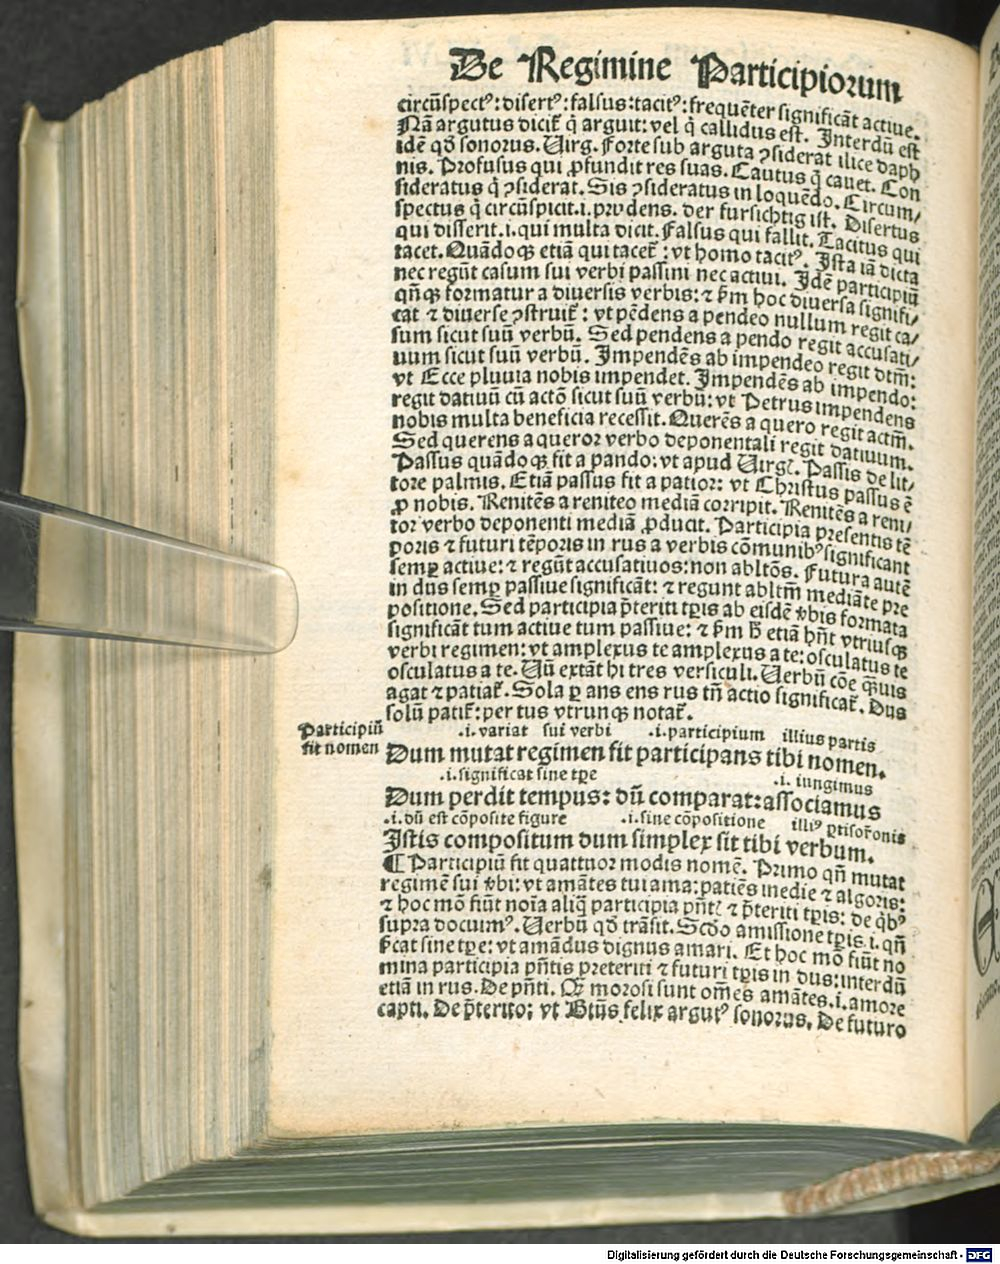 De Regimine Participiorum
circūspectꝰ: disertꝰ: falsus: tacitꝰ: frequēter significāt actiue.
Nā argutus dicit̄ q̇ arguit: vel q̇ callidus est. Interdū est
idē qđ sonorus. Uirg. Forte sub arguta ꝯsiderat ilice daph
nis. Profusus qui ꝓfundit res suas. Cautus q̇ cauet. Con
sideratus q̇ ꝯsiderat. Sis ꝯsideratus in loquēdo. Circum/
spectus q̇ circūspicit .i. prudens. der fursichtig ist. Disertus
qui disserit .i. qui multa dicit. Falsus qui fallit. Tacitus qui
tacet. Quādoqꝫ etiā qui tacet̄: vt homo tacitꝰ. Ista iā dicta
nec regūt casum sui verbi passiui nec actiui. Idē participiū
qn̄qꝫ formatur a diuersis verbis: ⁊ ẜm hoc diuersa signifi/
cat ⁊ diuerse ꝯstruit̄: vt pēdens a pendeo nullum regit ca/
sum sicut suū verbū. Sed pendens a pendo regit accusati/
uum sicut suū verbū. Impendēs ab impendeo regit dt̄m:
vt Ecce pluuia nobis impendet. Impendēs ab impendo:
regit datiuū cū actō sicut suū verbū: vt Petrus impendens
nobis multa beneficia recessit. Querēs a quero regit actm̄.
Sed querens a queror verbo deponentali regit datiuum.
Passus quādoqꝫ fit a pando: vt apud Uirgl̄. Passis de lit/
tore palmis. Etiā passus fit a patior: vt Christus passus ē
ꝓ nobis. Renitēs a reniteo mediā corripit. Renitēs a reni/
tor verbo deponenti mediā ꝓducit. Participia presentis tē
poris ⁊ futuri tēporis in rus a verbis cōmunibꝰ significant
semꝑ actiue: ⁊ regūt accusatiuos: non abltōs. Futura autē
in dus semꝑ passiue significāt: ⁊ regunt abltm̄ mediāte pre
positione. Sed participia p̄teriti tp̄is ab eisdē v̄bis formata
significāt tum actiue tum passiue: ⁊ ẜm ħ etiā hn̄t vtriusqꝫ
verbi regimen: vt amplexus te amplexus a te: osculatus te
osculatus a te. Uñ extāt hi tres versiculi. Uerbū cōe q̄uis
agat ⁊ patiat̄. Sola ꝑ ans ens rus tn̄ actio significat̄. Dus
solū patit̄: per tus vtrunqꝫ notat̄.
Participiū
fit nomen
.i. variat sui verbi .i. participium illius partis
Dum mutat regimen fit participans tibi nomen.
.i. significat sine tꝑe .i. iungimus
Dum perdit tempus: dū comparat: associamus
.i. dū est cōposite figure .i. sine cōpositione illiꝰ
Istis compositum dum simplex sit tibi verbum.
¶ Participiū fit quattuor modis nomē. Primo qn̄ mutat
regimē sui v̄bi: vt amātes tui ama: patiēs inedie ⁊ algoris:
⁊ hoc mō fiūt noīa aliq̄ participia pn̄tꝭ ⁊ p̄teriti tp̄is: de q̇bꝰ
supra docuimꝰ. Uerbū qđ trāsit. Scd̄o amissione tp̄is .i. qn̄
ẜcat sine tꝑe: vt amādus dignus amari. Et hoc mō fiūt no
mina participia pn̄tis preteriti ⁊ futuri tp̄is in dus: interdū
etiā in rus. De pn̄ti. Qꝫ morosi sunt om̄es amātes .i. amore
capti. De p̄terito: vt Btūs felix argutꝰ sonorus. De futuro
Digitalisierung gefördert durch die Deutsche Forschungsgemeinschaft - DFG